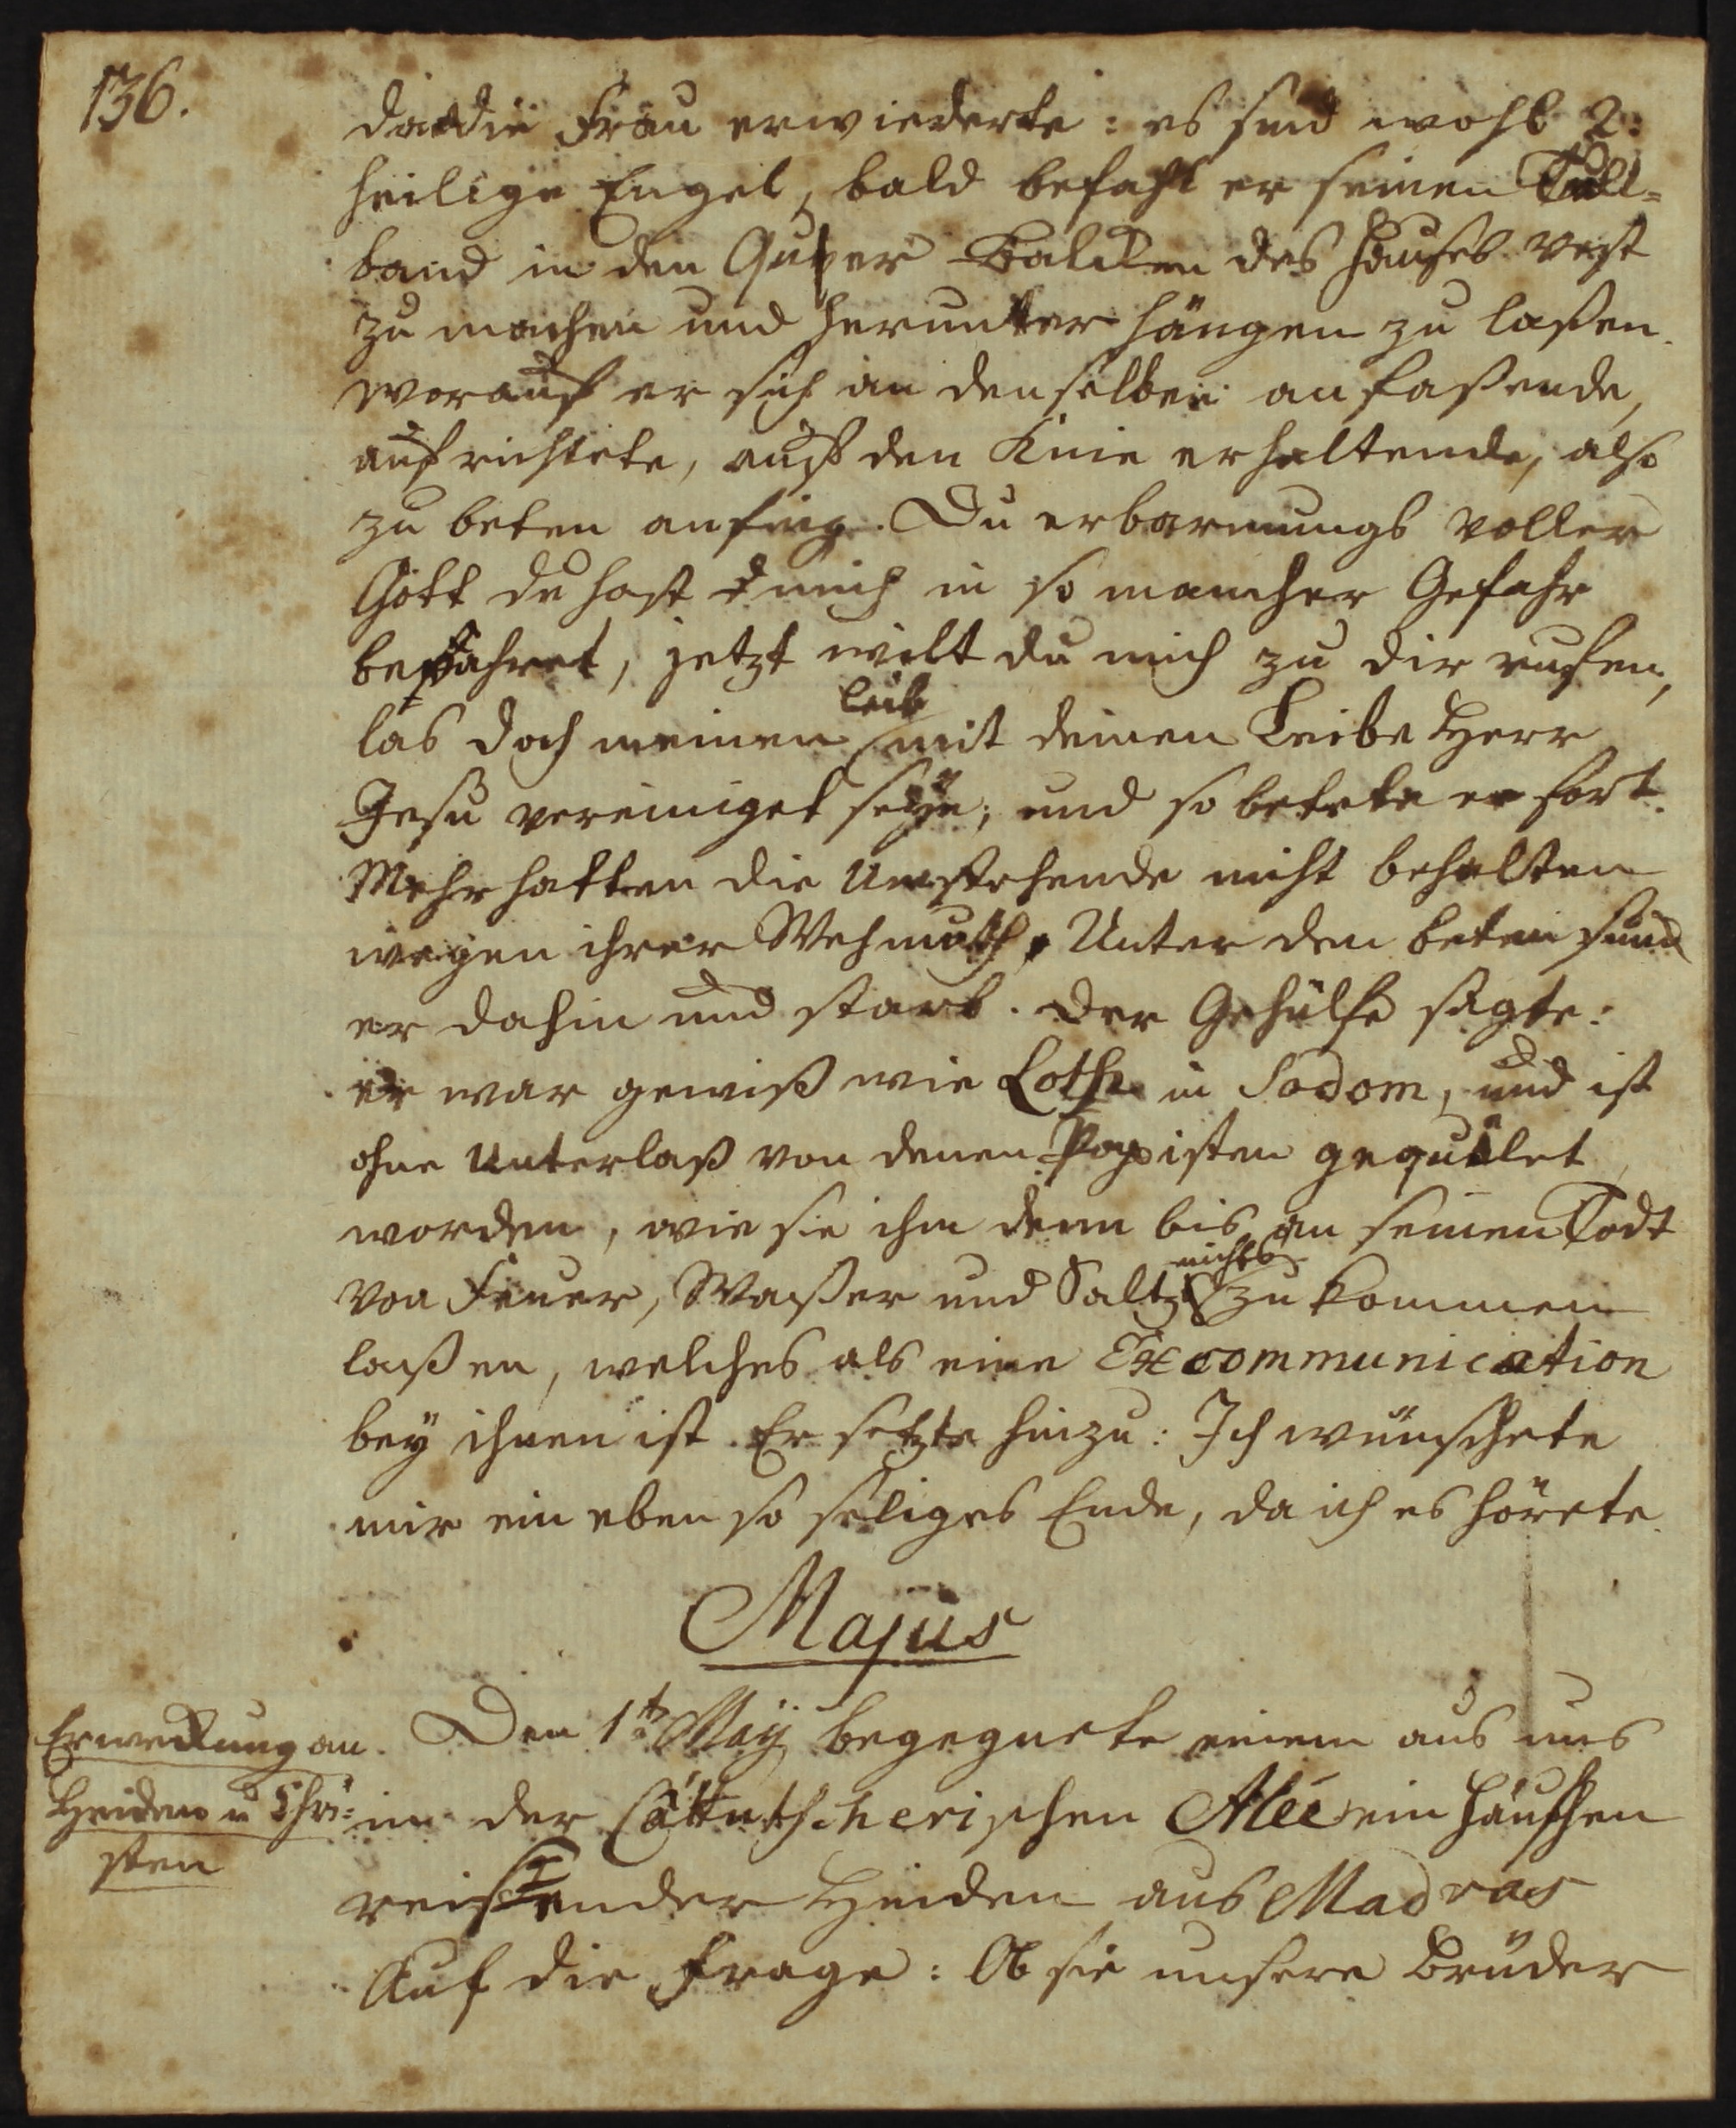 136.
da die Frau erwiederte: es sind wohl 2.
heilige Engel, bald befahl er seinen Tull=
band in den Quher Balcken des Hauses vest
zu machen und herunter hängen zu laßen.
worauf er sich an denselben anfaßende,
aufrichtete, auf den Knie erhaltende, also
zu beten anfing. Du erbarmungs voller
Gott du hast mich in so mancher Gefahr
bewahret, jetzt wilt du mich zu dir rufen,
las doch meinen Leib mit deinen Leibe Herr
Jesu vereiniget seÿn; und so betete er fort.
Mehr hatten die Umstehende nicht behalten
wegen ihrer Wehmuth. Unter den beten sunck
er dahin und starb. Der Gehülfe sagte:
er war gewiß wie Loth in Sodom, und ist
ohne Unterlaß von denen Papisten gequälet
worden, wie sie ihm denn bis an seinen Todt
von Feuer, Waßer und Saltz nichts zu kommen
laßen, welches als eine Excommunication
beÿ ihnen ist. Er setzte hinzu: Ich wünschete
mir ein eben so seliges Ende, da ich es hörete.
Majus
Erweckung an
Heiden u Chri=
sten
Den 1ten Maÿ begegnete einem aus uns
in der Cättutscherischen Aleé ein Häufchen
reisender Heiden aus Madras
Auf die Frage: Ob sie unsere Brüder